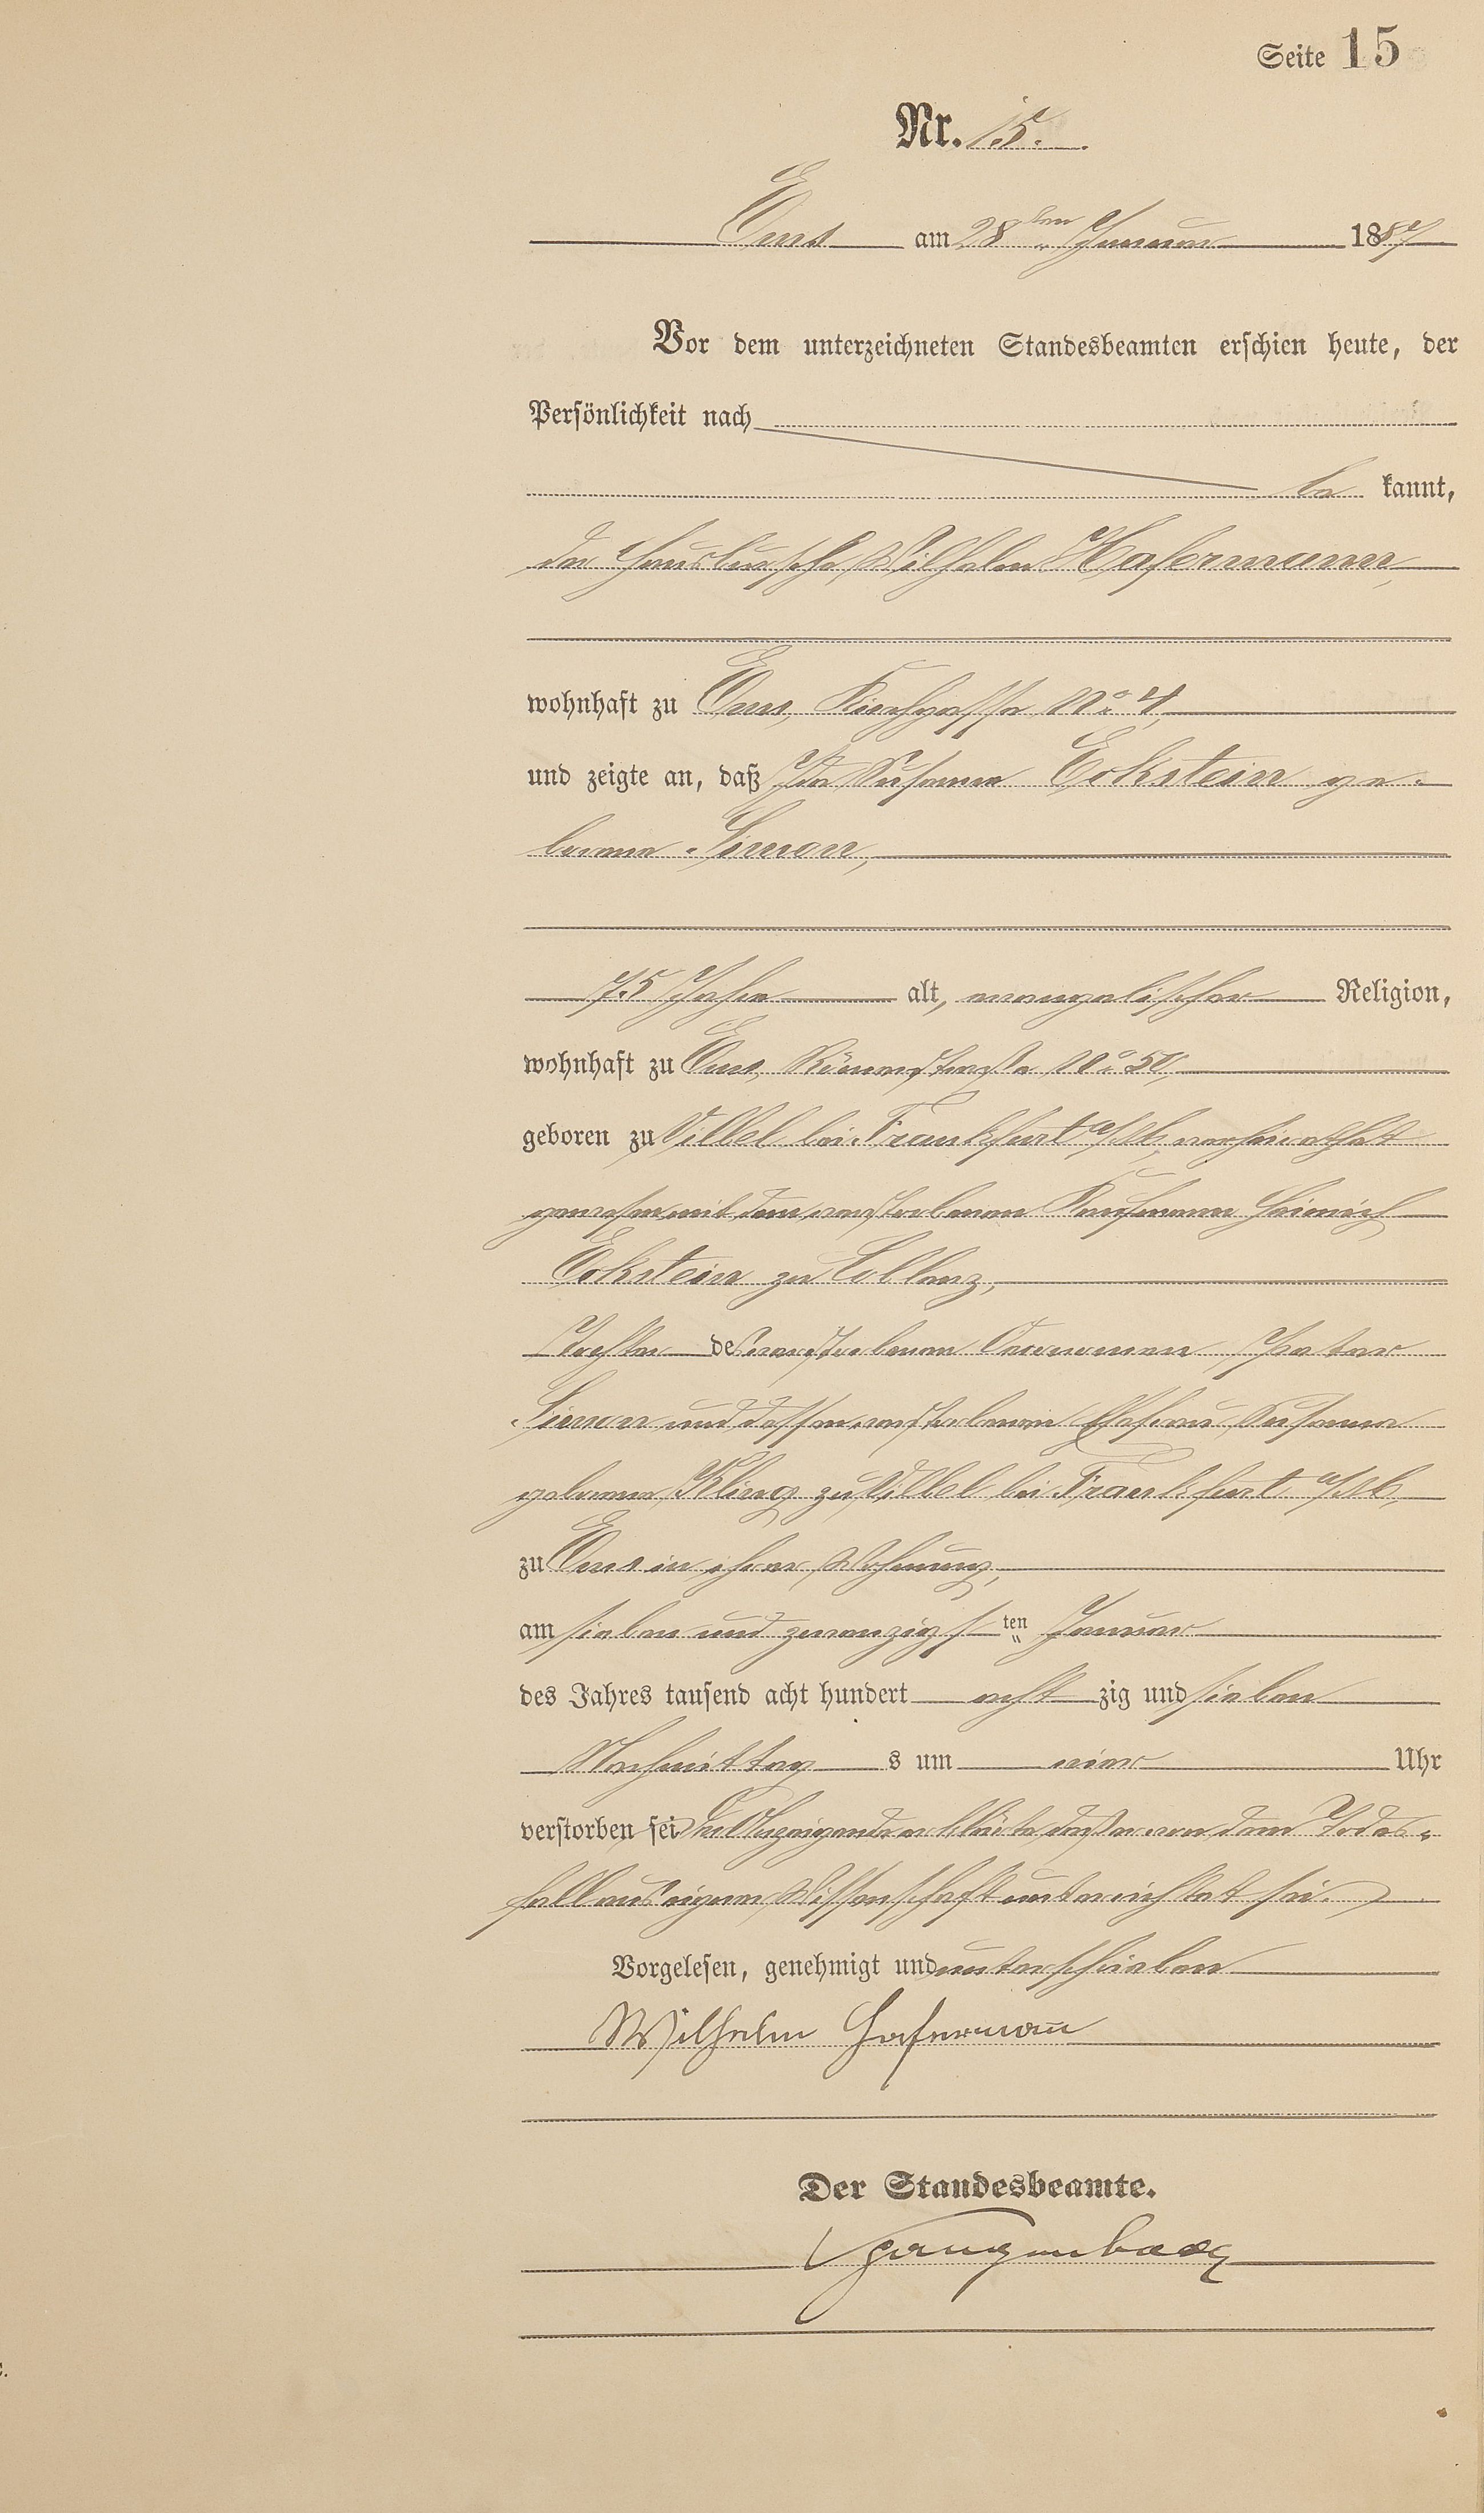 Seite 15
Nr. 15.
Ems am 28ten Januar 1887
Vor dem unterzeichneten Standesbeamten erschien heute, der
Persönlichkeit nach
be kannt,
der Hausbursche Wilhelm Hafermann,
wohnhaft zu Ems, Kirchgasse No 4,
und zeigte an, daß die Susanna Eckstein ge-
borene Simon,
75 Jahre alt, evangelischer Religion,
wohnhaft zu Ems, Römerstraße No 50,
geboren zu Vilbel bei Frankfurt a/M, verheirathet
gewesen mit dem verstorbenen Kaufmann Heinrich
Eckstein zu Coblenz,
Tochter des verstorbenen Oeconomen Peter
Simon und dessen verstorbenen Ehefrau Susanna
geborene Kling zu Vilbel bei Frankfurt a/M,
zu Ems in ihrer Wohnung,
am sieben und zwanzigsten Januar
des Jahres tausend acht hundert acht zig und sieben
Nachmittag s um vier Uhr
verstorben sei Der Anzeigende erklärte daß er von dem Todes-
fall aus eigener Wissenschaft unterrichtet sei.
Vorgelesen, genehmigt und unterschrieben
Wilhelm Hafermann
Der Standesbeamte.